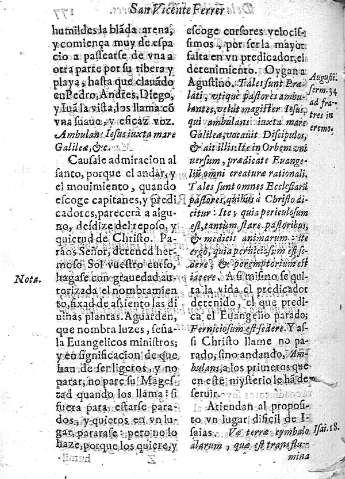 San Vicente Ferrer
humildes la blãda arena,
y comiença muy de espa
cio a passearse de vna a
otra parte por su ribera y
playa, hasta que clauãdo
en Pedro, Andres, Diego,
y Iuã la vista, los llama cõ
vna suaue, y eficaz voz.
Ambulans Iesus iuxta mare
Galileæ, &c.
Causale admiracion al
santo, porque el andar, y
el mouimiento, quando
escoge capitanes, y predi
cadores, parecerà a algu-
no, desdize del reposo, y
quietud de Christo. Pa-
raos Señor, detened her-
moso Sol vuestro curso,
hagase con grauedad au-
torizada el nombramien
to, fixad de asiento las di
uinas plantas. Aguarden,
que nombra luzes, seña-
la Euangelicos ministros;
y en significacion de que
han de ser ligeros, y no
parar, no pare su Mages-
tad quando los llama: si
fuera para estarse para-
dos, y quietos en vn lu-
gar, pararase: pero no lo
haze, porque los quiere, y
Nota.
escoge cursores velocis-
simos, por ser la mayor
falta en vn predicador, el
detenimiento. Oygan a
Agustino. Tales sunt Præ
lati, vtique pastores ambu-
lantes, velut magister Iesus,
qui ambulans iuxta mare
Galileæ, vocauit Discipulos,
& ait illis: Ite in Orbem vni
uersum, prædicate Euange-
lium omni creaturæ rationali.
Tales sunt omnes Ecclesiarũ
pastores, quibus à Christo di-
citur: Ite; quia periculosum
est, tantum, stare pastoribus,
& medicis animarum: ite
ergo, quia perniciosum est se-
dere, & peremptorium est
iacere. Assi mismo se qui-
ta la vida el predicador
detenido, el que predi-
ca el Euangelio parado;
Perniciosum est sedere. Y as-
si Christo llame no pa-
rado, sino andando, Am-
bulans, a los primeros que
en este mysterio le hã de
seruir.
Atiendan al proposito
vn lugar dificil de I-
saias. Væ terræ cymbalo
alarum, quæ est transflu-
mina
Augusti.
serm. 34
ad fra-
tres in
eremo.
Isai. 18.